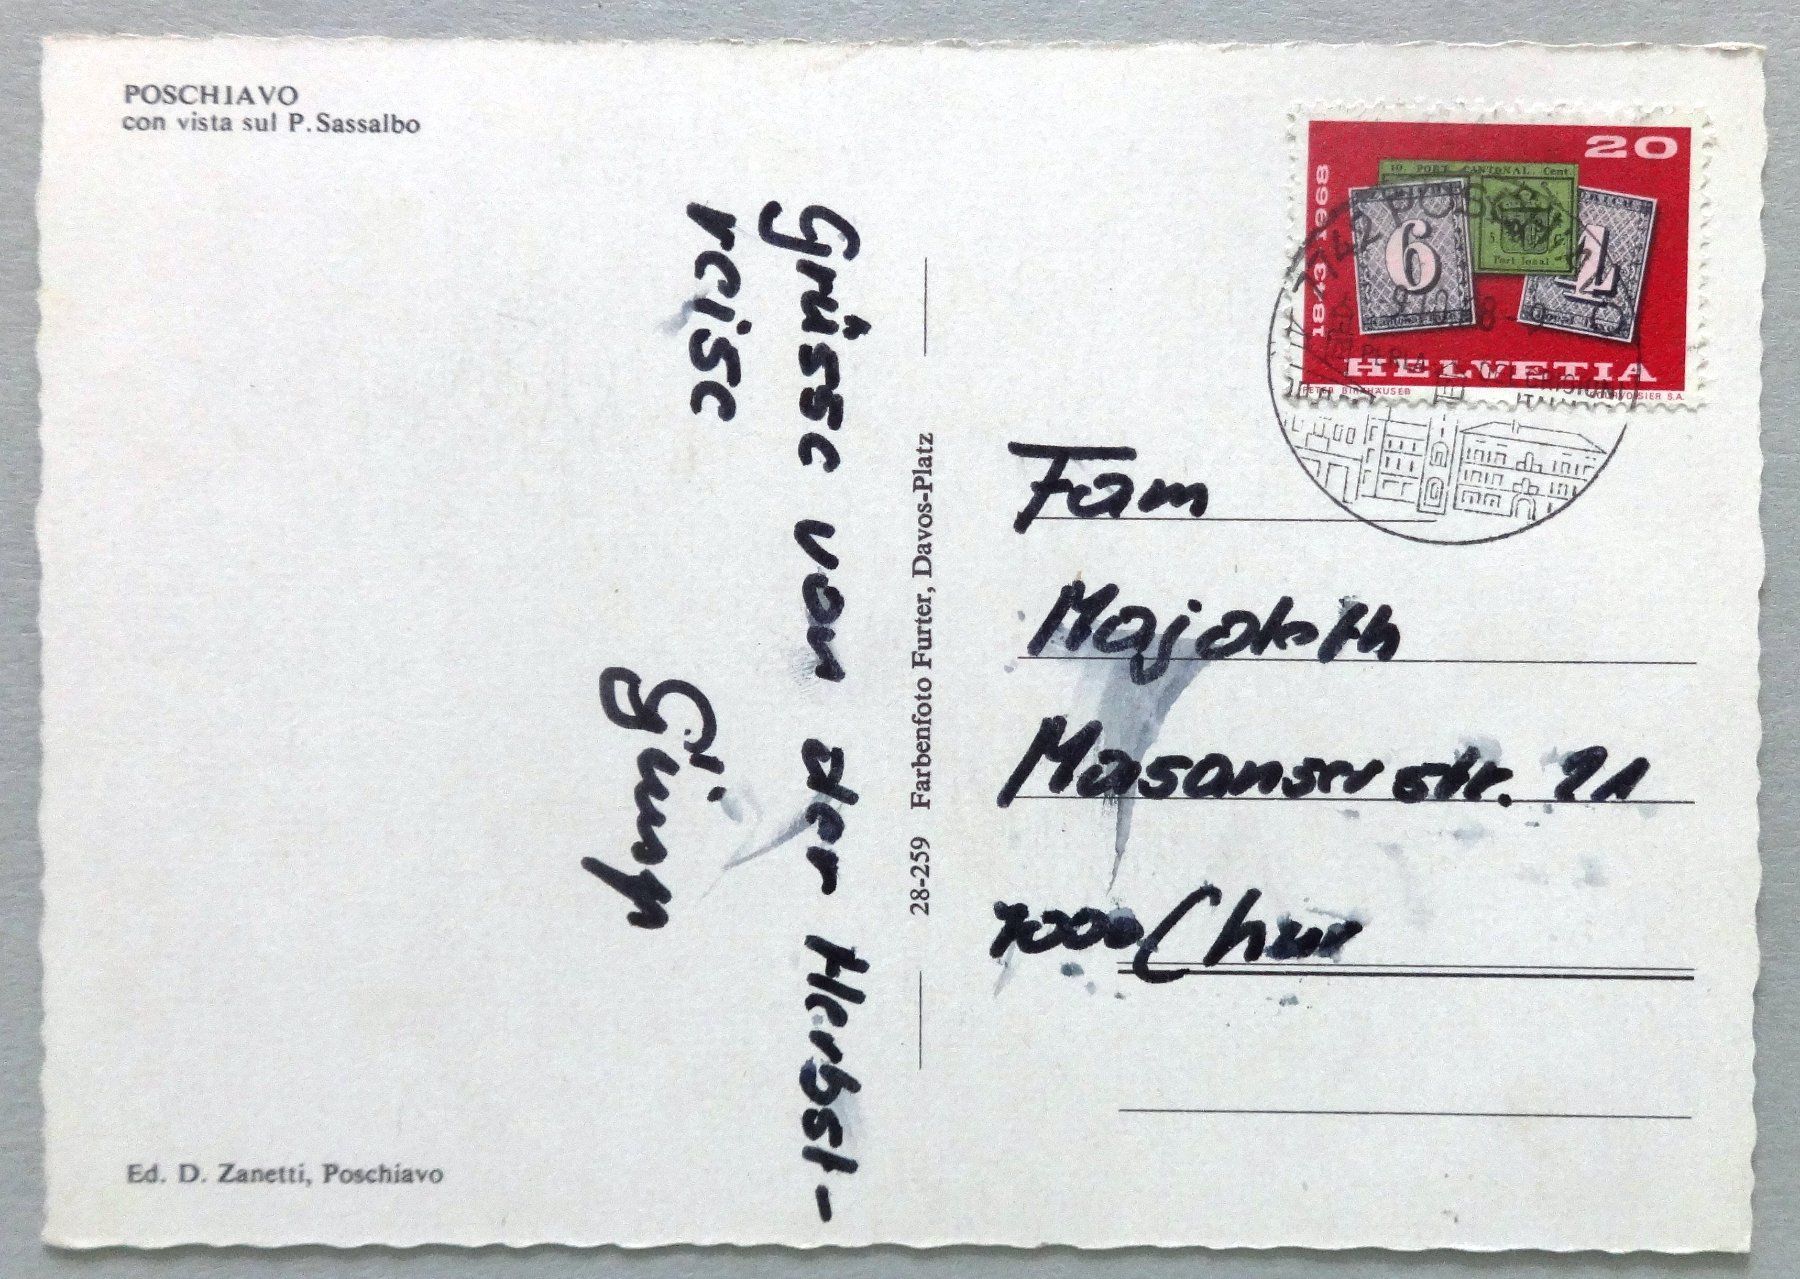 POSCHIAVO
con vista sul P. Sassalbo
Grüsse von der Herbst-
reise
Ed. D. Zanetti, Poschiavo
28-259 Farbenfoto Furter, Davos-Platz
20
1843 1968
10 PORT CANTONAL Cent.
6
Port local
4
HELVETIA
PETER BIRKHÄUSER
COURVOISIER S.A.
7742 POSCHIAVO
PERLA DEL GRIGIONI
Fam
Majoleth
Masanserstr. 21
7000 Chur